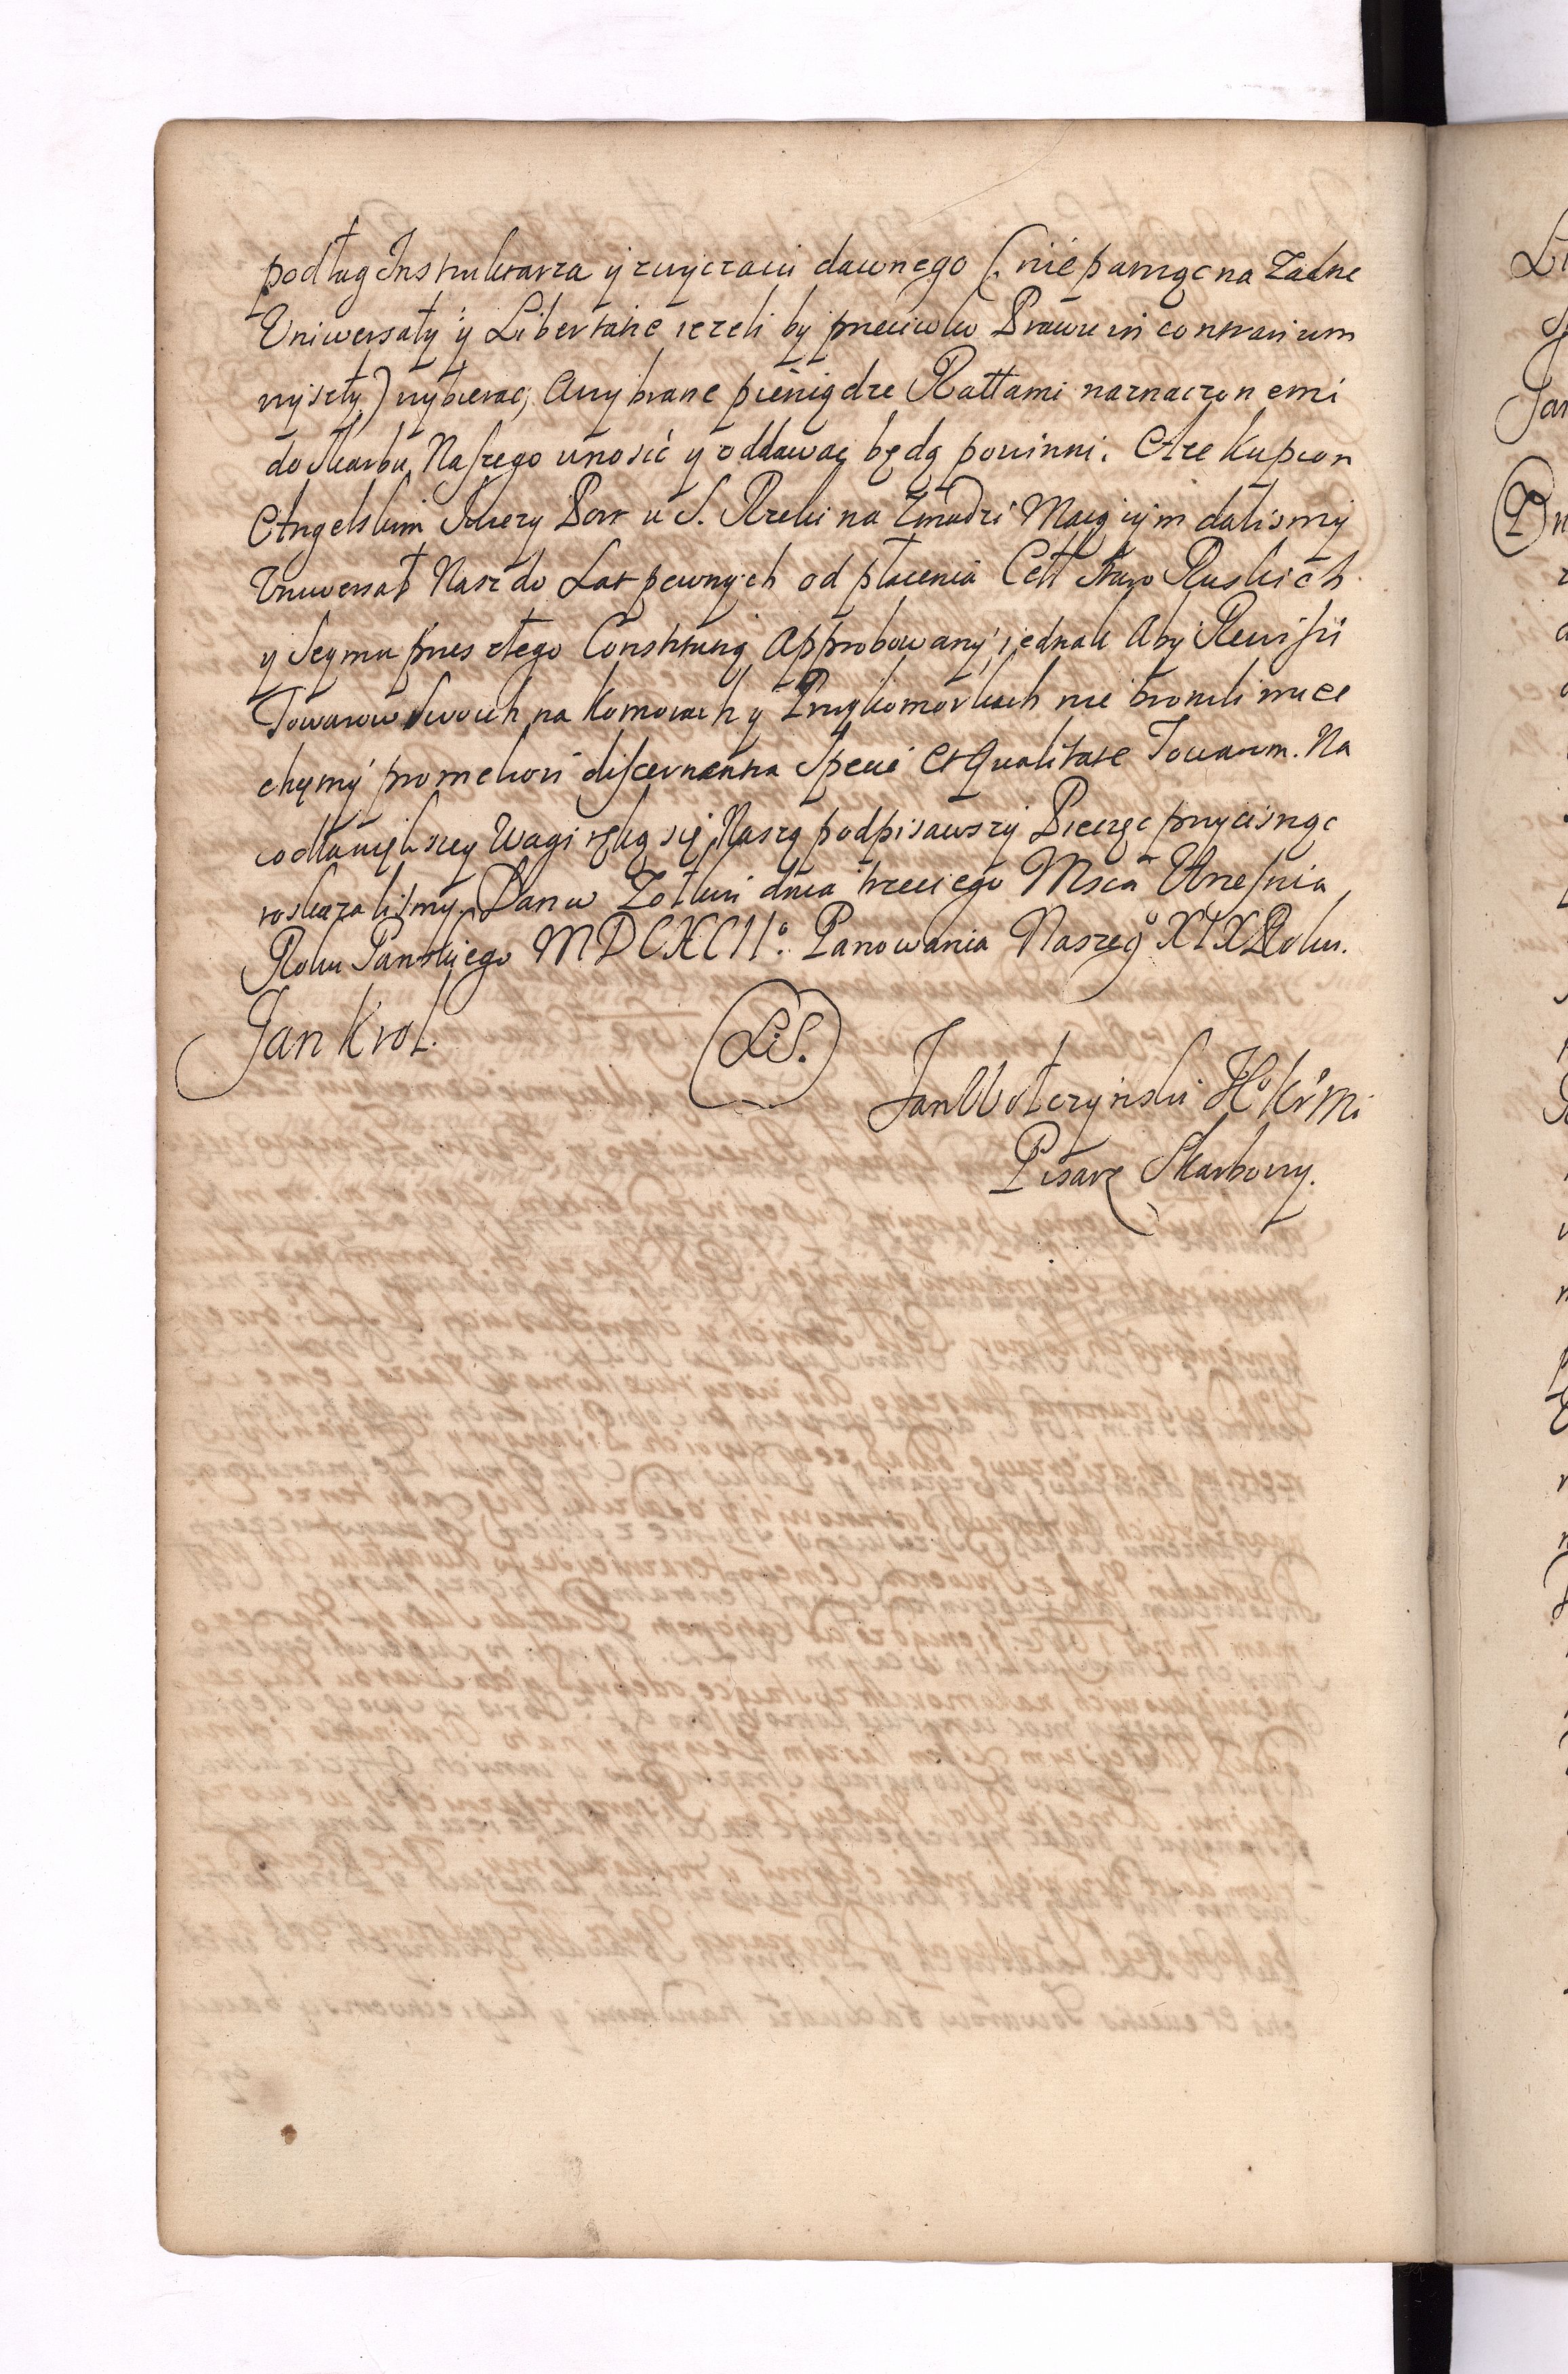 podług Instruktarza y zwyczaiu dawnego (: nie pamięc na Zadne
Uniwersały y Libertatie iezeli by przeciwko Prawu in contrarium
wyszły) wybierac, A wybrane pieniądze Rattami naznaczonemi
do Skarbu Naszego wnosić y oddawac będą powinni. A ze Kupcom
Angelskim Ktorzy Port u S. Rzeki na Zmudzi Maiącym dalismy
Uniwersał Nasz do Lat pewnych od płacenia Cełł Staro Ruskich
y Seymu przeszłego Constitutią Approbowany, iednak Aby Rewisii
Towarow Swoich na Komorach y Przykomorkach nie bronili miec
chcemy pro meliori discernenda Specie Et Qualitate Towarow. Na
co dla większey Wagi ręką się Naszą podpisawszy Pieczęc przycisnąc
roskazalismy. Dan w Zołkwi dnia trzeciego Msca Wrzesnia
Roku Panskiego MDCXCII°. Panowania Naszeg° XIX Roku.
Jan Krol.
L.S.
Jan Wołczynski JKrMi
Pisarz Skarbowy.